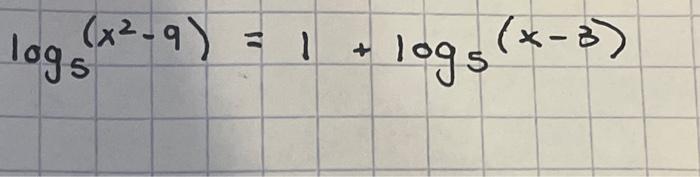 log₅(x²-9) = 1 + log₅(x-3)